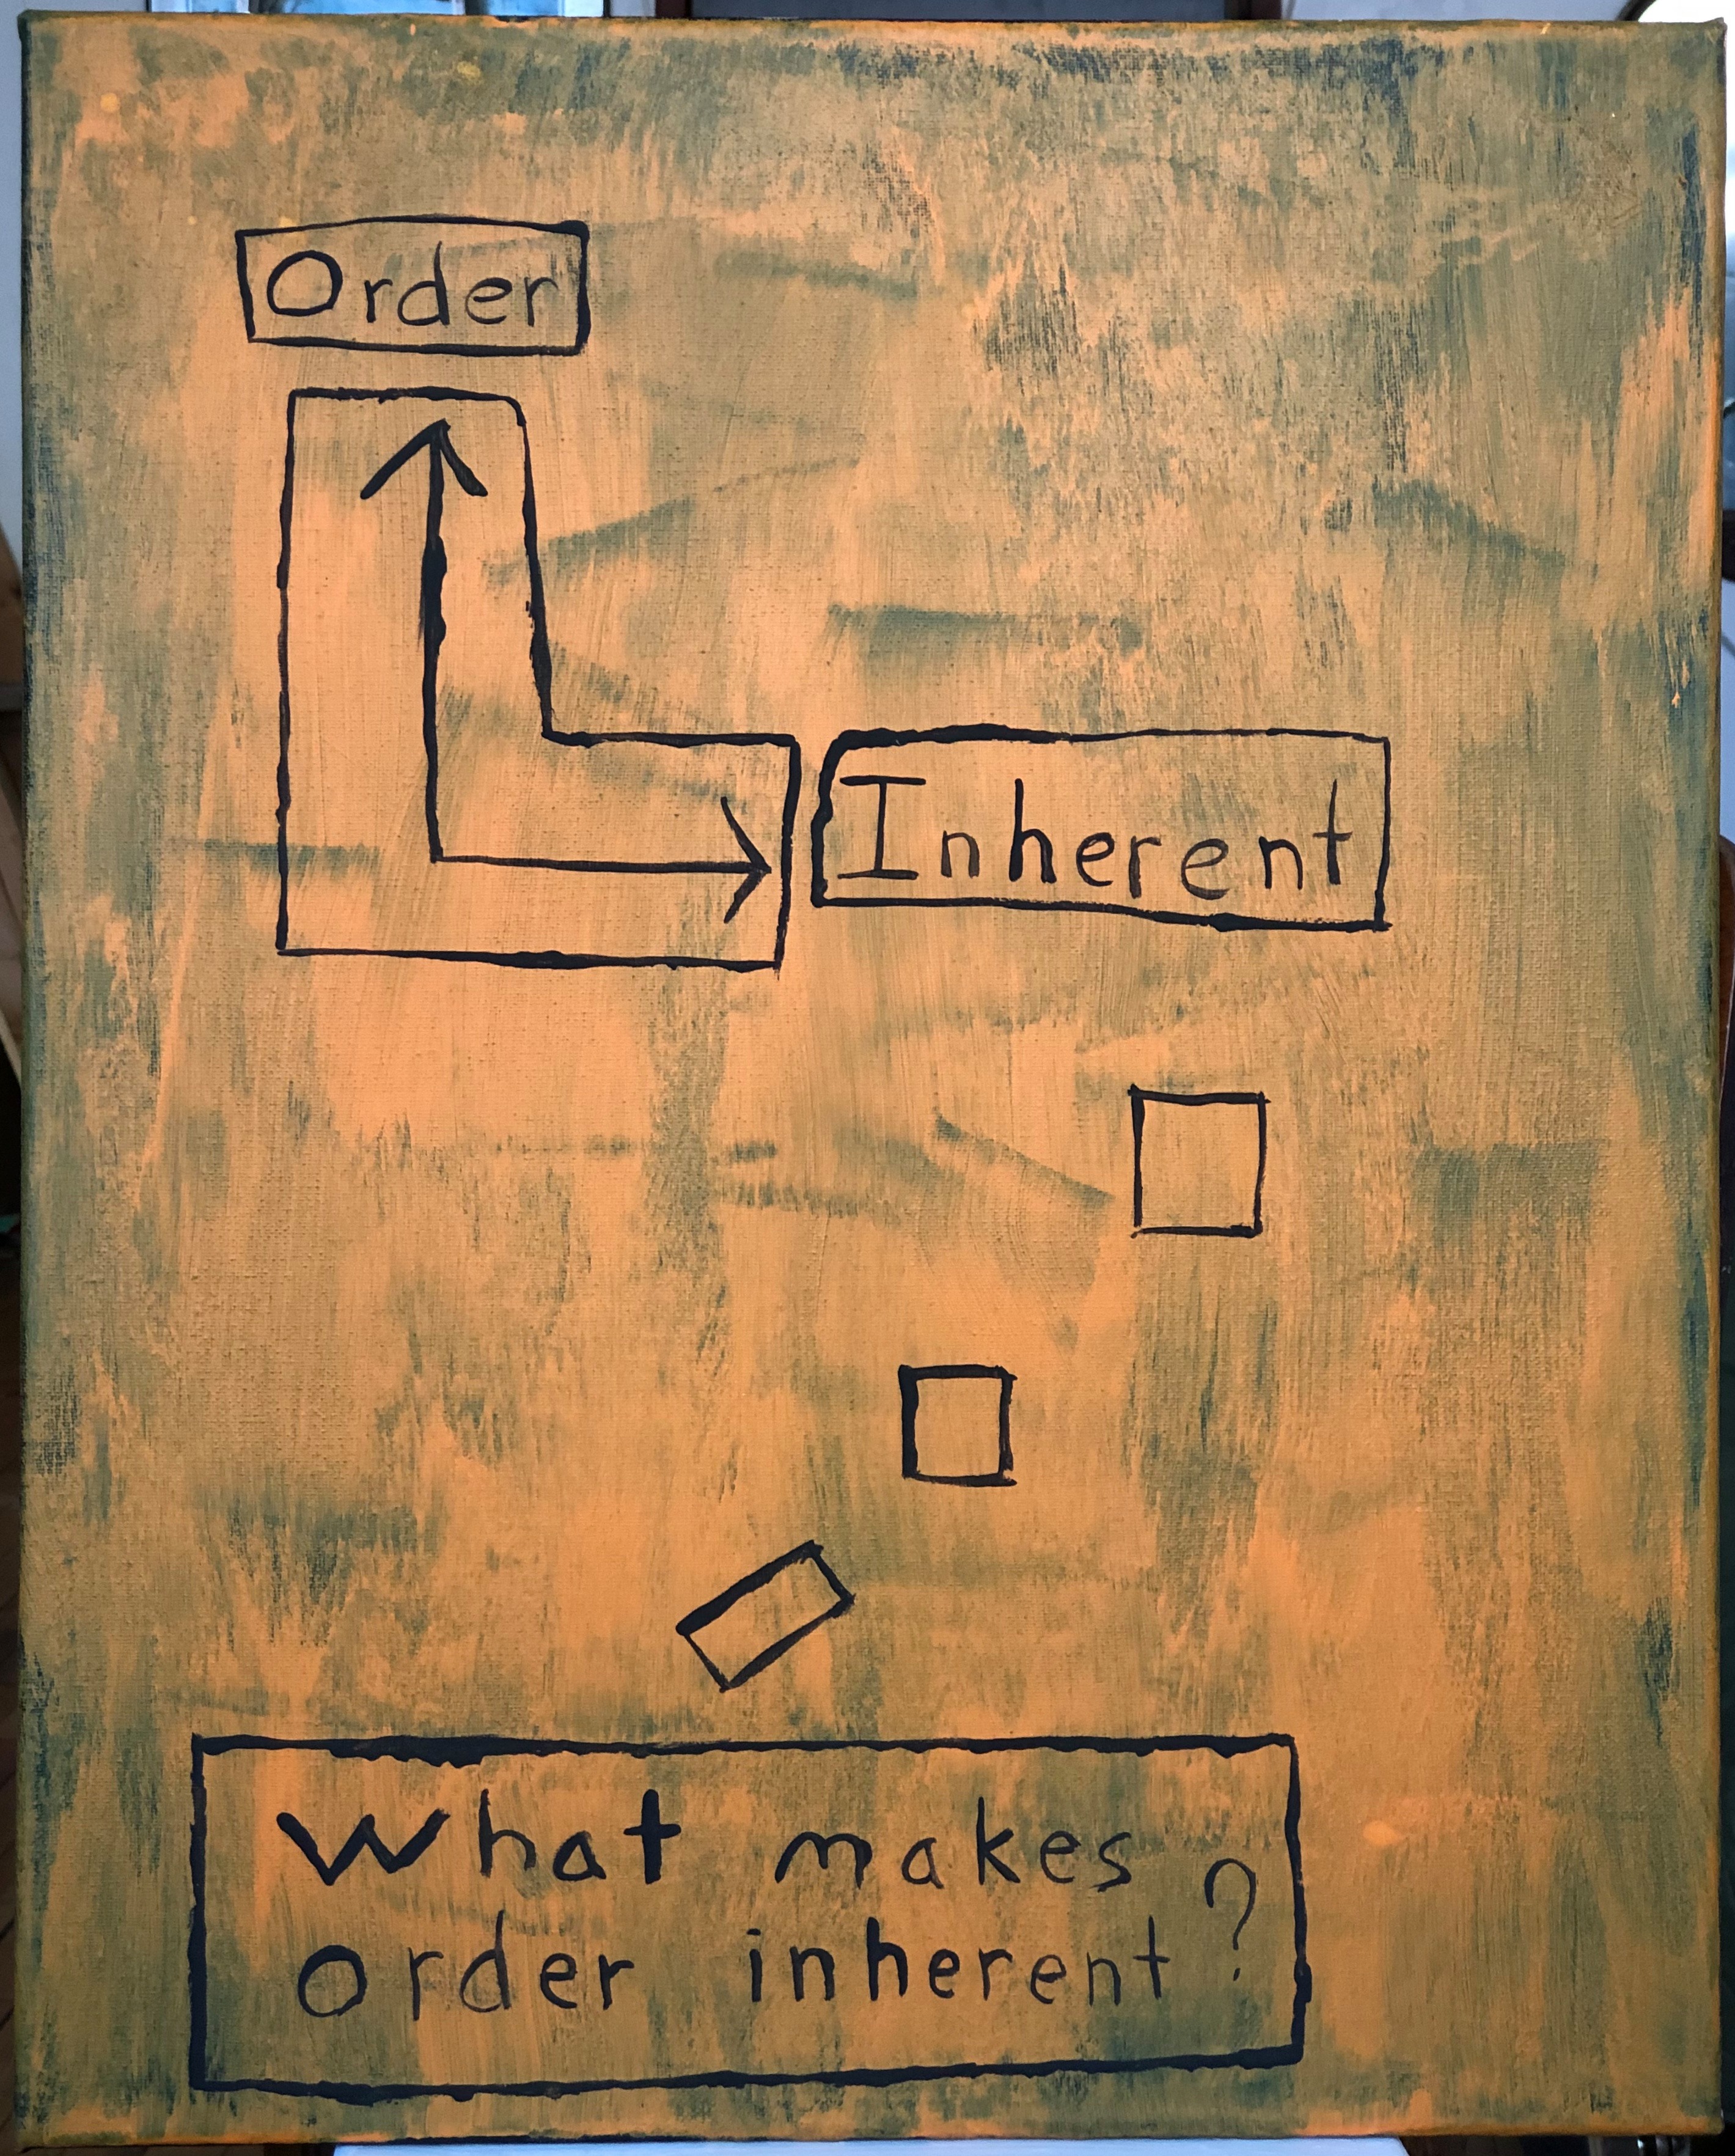 Order
Inherent
What makes
order inherent?